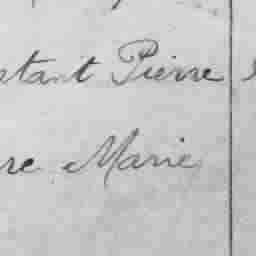 stant Pierre
re Marie